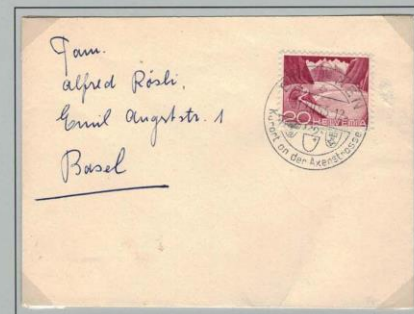 Fam.
Alfred Rösli,
Emil Angststr. 1
Basel
20 HELVETIA
Kurort an der Axenstrasse